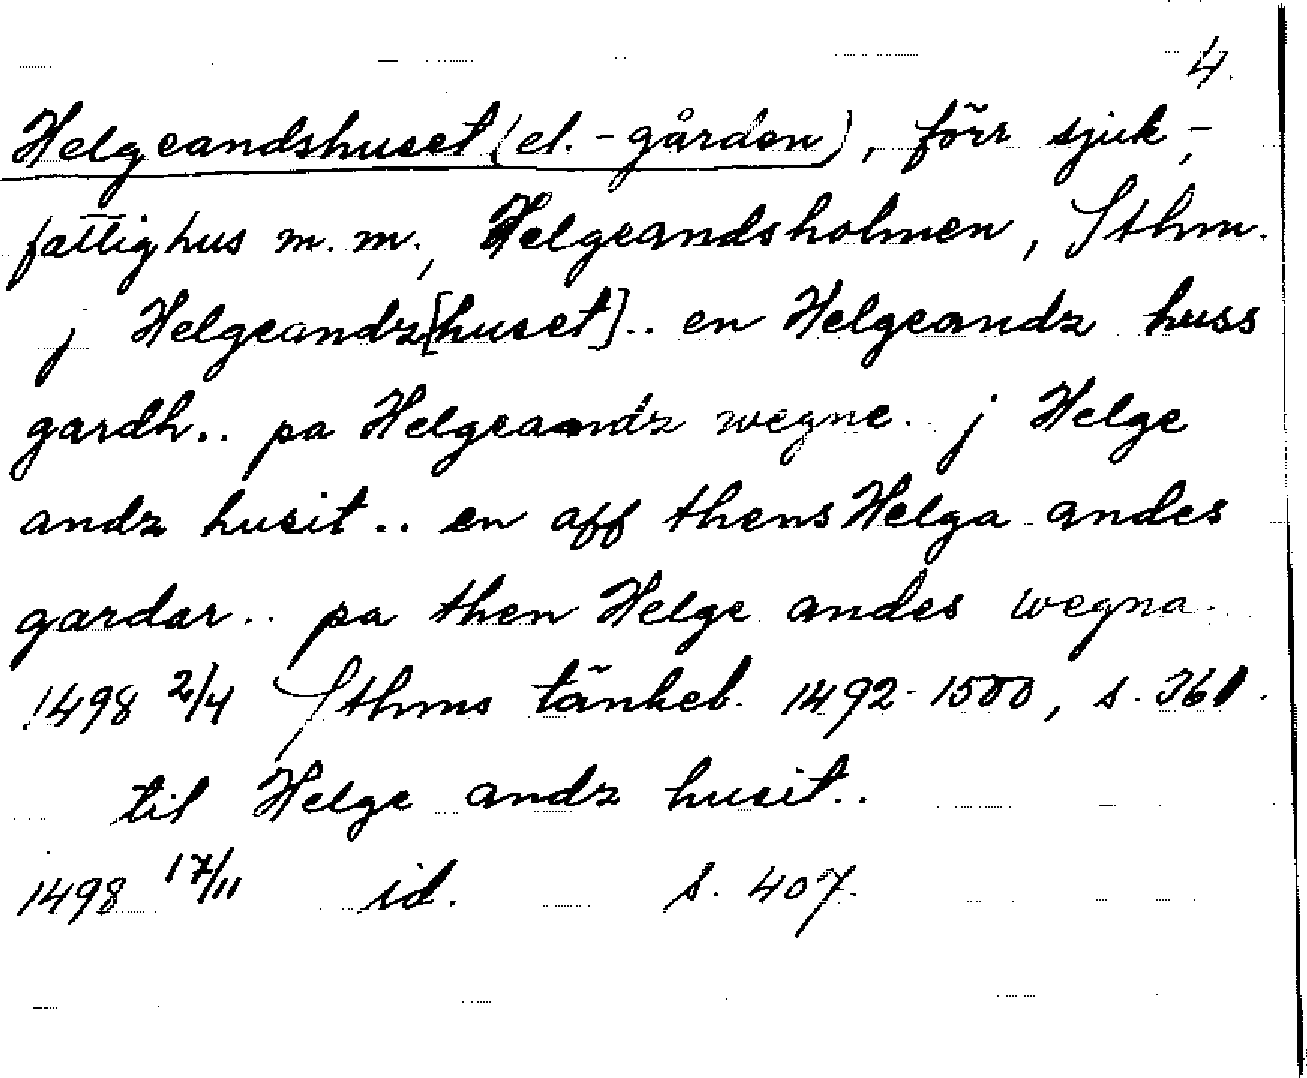 4.
Helgeandshuset (el. -gården), förr sjuk-,
fattighus m. m., Helgeandsholmen, Sthm.
j Helgeandz[huset].. en Helgeandz huss
gardh.. pa Helgeaandz wegne.. j Helge
andz husit.. en aff thens Helga andes
gardar.. pa then Helge andes wegna.
1498 2/4 Sthms tänkeb. 1492-1500, s. 361.
til Helge andz husit..
1498 17/11 id. s. 407.